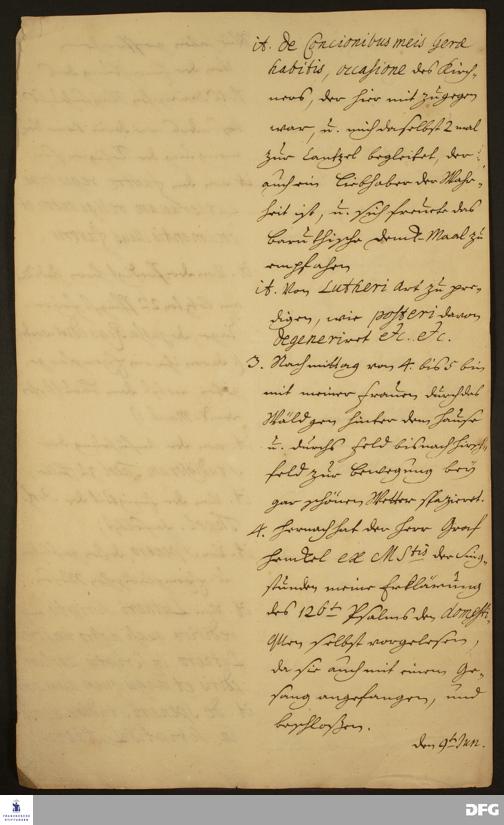 it. de Concionibus meis Geræ
habitis, occasione des Kirch-
ners, der hier mit zugegen
war, u. mich daselbst 2 mal
zur Cantzel begleitet, der
auch ein Liebhaber der Wahr-
heit ist, u. sich freuete das
Baruthische Maal zu
empfahen
it. Von Lutheri Art zu pre-
digen, wie posteri davon
degeneriret etc. etc.
3. Nachmittag von 4. bis 5 bin
mit meiner Frauen durch das
Wäldgen hinter dem Hause
u. durchs Feld bis nach
feld zur Bewegung bey
gar schönen Wetter spazieret.
4. Hernach hat der Herr Graf
Henckel ex MStis der Sing-
stunden meine Erklärung
des 126ten Psalms den Domesti-
quen selbst vorgelesen,
da sie auch mit einem Ge-
sang angefangen, und
beschloßen.
den 9ten Jun.
FRANCKESCHE
STIFTUNGEN
DFG